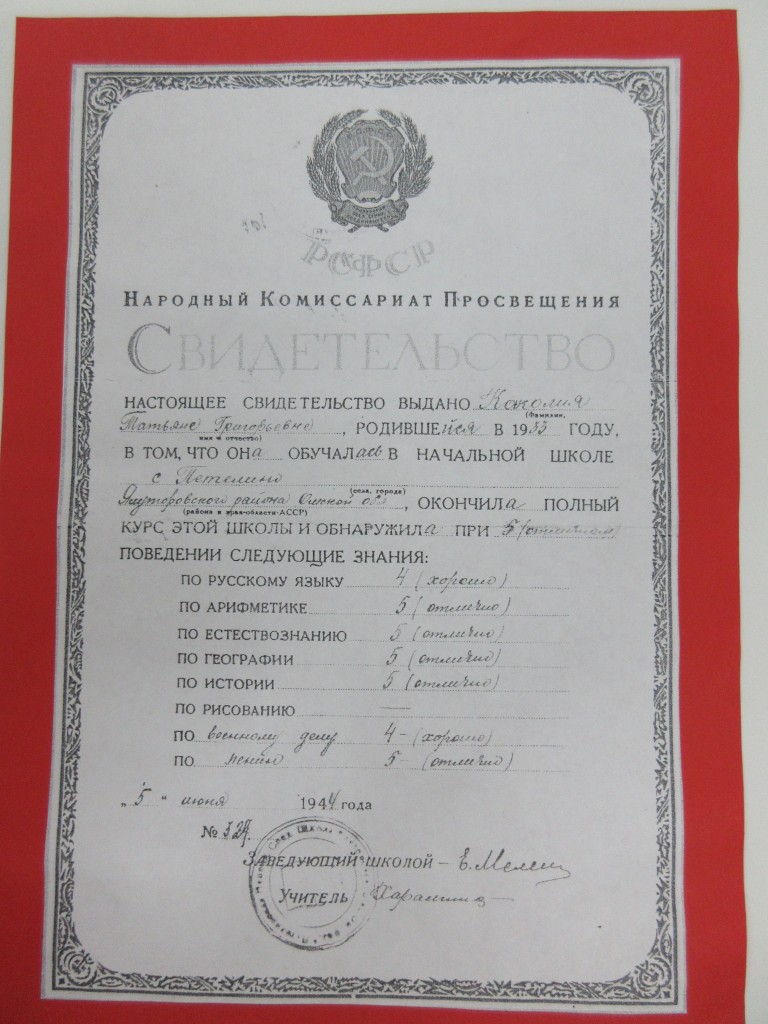 РСФСР
НАРОДНЫЙ КОМИССАРИАТ ПРОСВЕЩЕНИЯ
СВИДЕТЕЛЬСТВО
НАСТОЯЩЕЕ СВИДЕТЕЛЬСТВО ВЫДАНО
(Фамилия,
Татьяне Григорьевне, РОДИВШЕЙСЯ В 1933 ГОДУ,
имя и отчество)
В ТОМ, ЧТО ОНА ОБУЧАЛАСЬ В НАЧАЛЬНОЙ ШКОЛЕ
с Петелино
(села, города)
Ялуторовского района Омской обл, ОКОНЧИЛА ПОЛНЫЙ
(района и края-области-АССР)
КУРС ЭТОЙ ШКОЛЫ И ОБНАРУЖИЛА ПРИ 5 (отличном)
ПОВЕДЕНИИ СЛЕДУЮЩИЕ ЗНАНИЯ:
ПО РУССКОМУ ЯЗЫКУ 4 (хорошо)
ПО АРИФМЕТИКЕ 5 (отлично)
ПО ЕСТЕСТВОЗНАНИЮ 5 (отлично)
ПО ГЕОГРАФИИ 5 (отлично)
ПО ИСТОРИИ 5 (отлично)
ПО РИСОВАНИЮ —
ПО военному делу 4 - (хорошо)
ПО пению 5 - (отлично)
„5" июня 1944 года
№ 329.
ЗАВЕДУЮЩИЙ ШКОЛОЙ –
УЧИТЕЛЬ